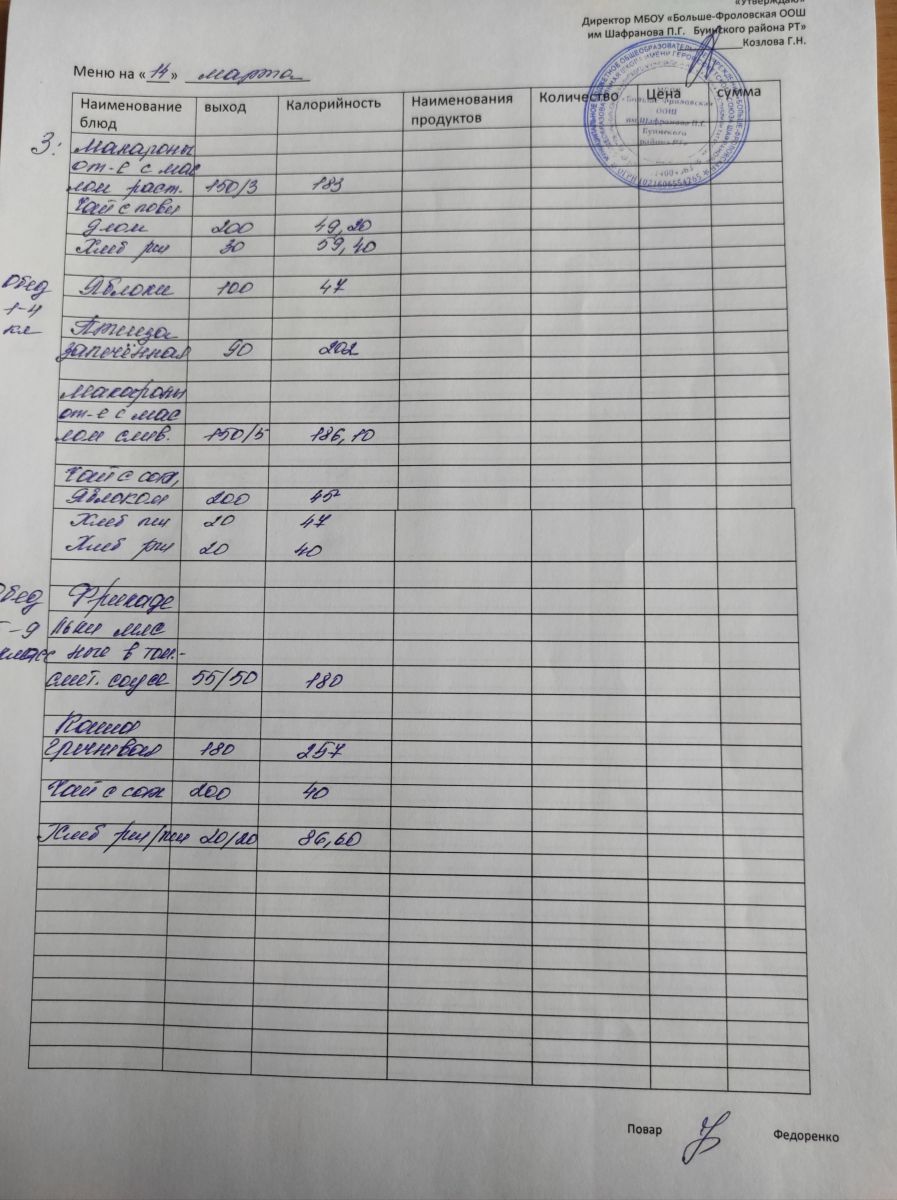 «Утверждаю»
Директор МБОУ «Больше-Фроловская ООШ
им Шафранова П.Г. Буинского района РТ»
Козлова Г.Н.
Меню на «14» марта
Наименование блюд выход Калорийность Наименования продуктов Количество Цена сумма
Больше-Фроловская
ООШ
им.Шафранова П.Г.
Буинского
района РТ
ОГРН 1021606554265
З:
Макароны
от-е с мас
лом раст. 150/3 183
Чай с пови
длом 200 49,20
Хлеб рж 30 59,40
Обед
1-4
кл
Яблоки 100 47
Птица
запечённая 90 202
Макароны
от-е с мас
лом слив. 150/5 186,10
Чай с сах,
Яблоком 200 45
Хлеб пш 20 47
Хлеб рж 20 40
Обед
5-9
класс
Фрикаде
льки мяс
ные в том.-
смет. соусе 55/50 180
Каша
гречневая 180 257
Чай с сах 200 40
Хлеб рж/пш 20/20 86,60
Повар Федоренко